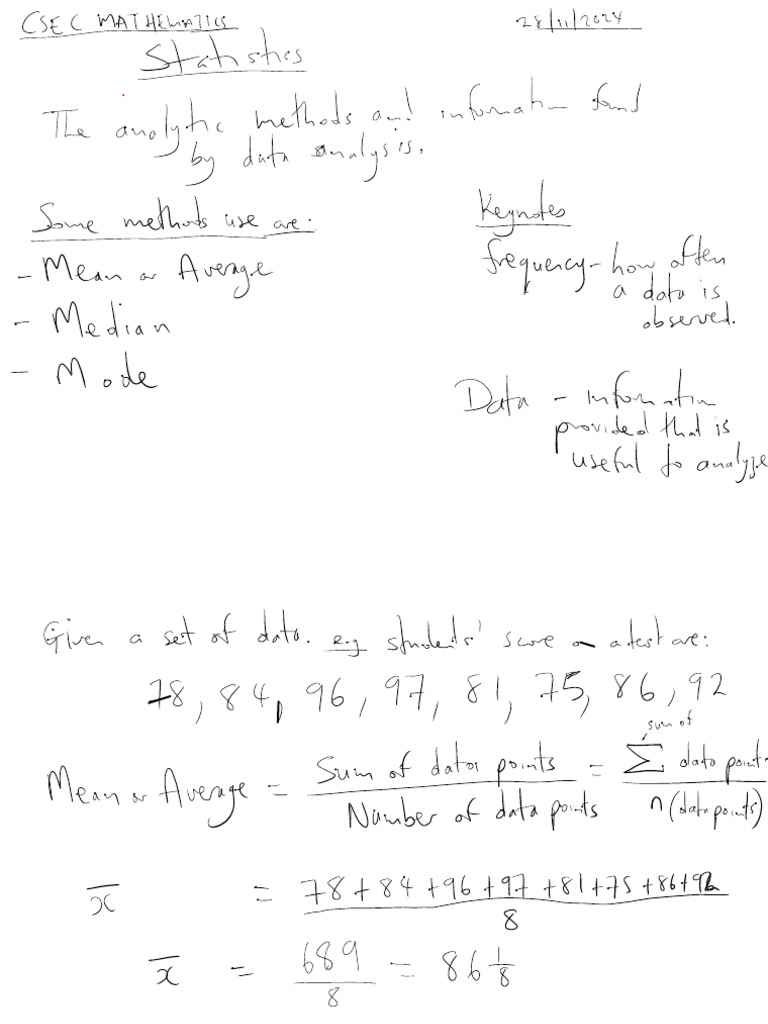 CSEC MATHEMATICS
28/11/2024
Statistics
The analytic methods and information found
by data analysis.
Some methods use are:
- Mean or Average
- Median
- Mode
Keynotes
frequency - how often
a data is
observed.
Data - information
provided that is
useful to analyze
Given a set of data. e.g students' score on a test are:
78, 84, 96, 97, 81, 75, 86, 92
Mean or Average = Sum of data points / Number of data points = ∑ data point / n(data points)
sum of
x̄ = 78+84+96+97+81+75+86+92 / 8
x̄ = 689/8 = 86 1/8